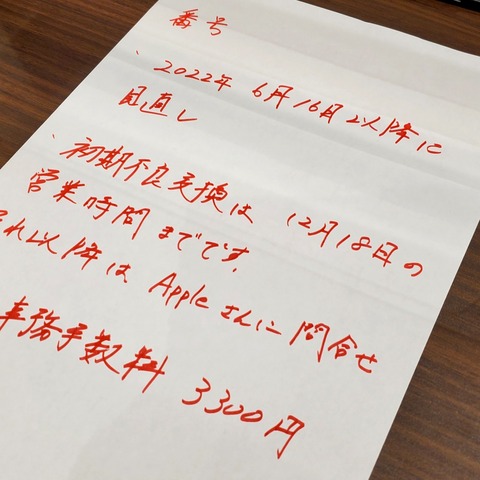 番号
、2022年 6月16日以降に
見直し
、初期不良交換は 12月18日の
営業時間までです。
それ以降は Appleさんに問合せ
事務手数料 3300円